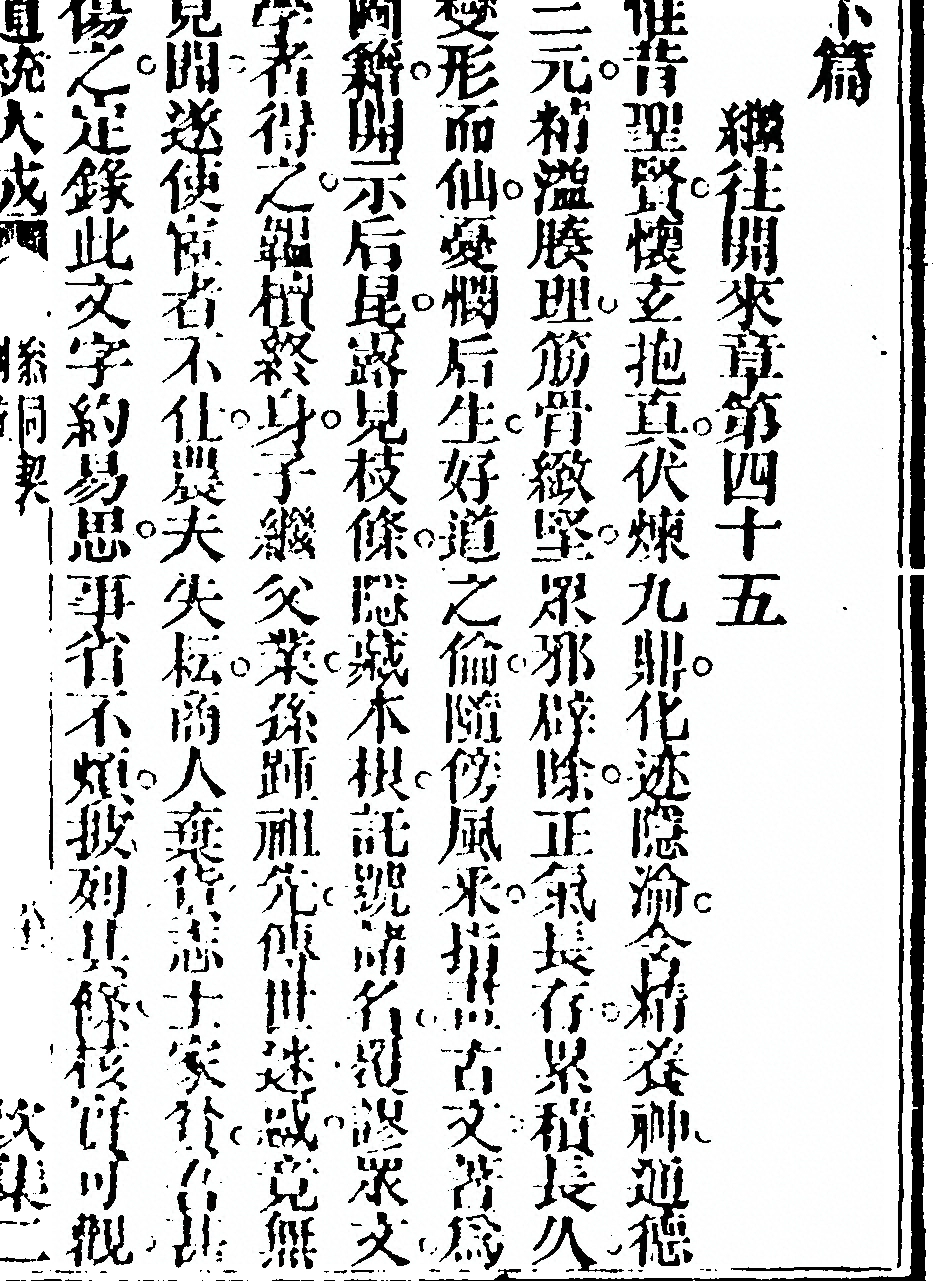 下篇
繼往開來章第四十五
惟昔聖賢懷玄抱真伏煉九鼎化迹隱淪含精養神通德
三元精溢腠理筋骨緻堅眾邪辟除正氣長存累積長久
變形而仙憂憫后生好道之倫隨傍風采指畫古文著爲
圖籍開示后昆露見枝條隱藏本根託號諸名覆謬眾文
學者得之韞櫝終身子繼父業孫踵祖先傳世迷惑竟無
見聞遂使宦者不仕農夫失耘商人棄貨志士家貧吾甚
傷之定錄此文字約易思事省不煩披列其條核實可觀
道統大成
參同契